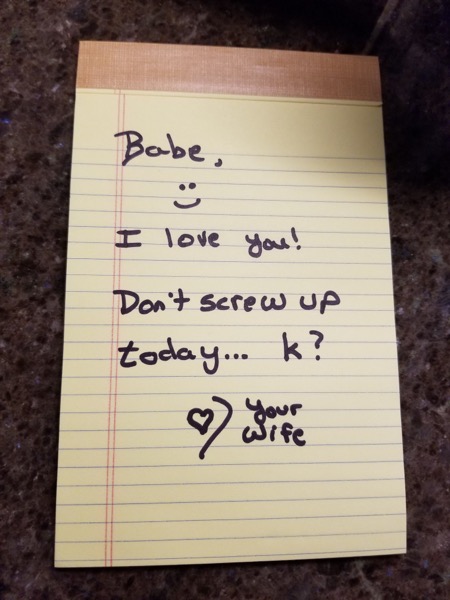 Babe,
I love you!
Don't screw up
today... k?
your
wife